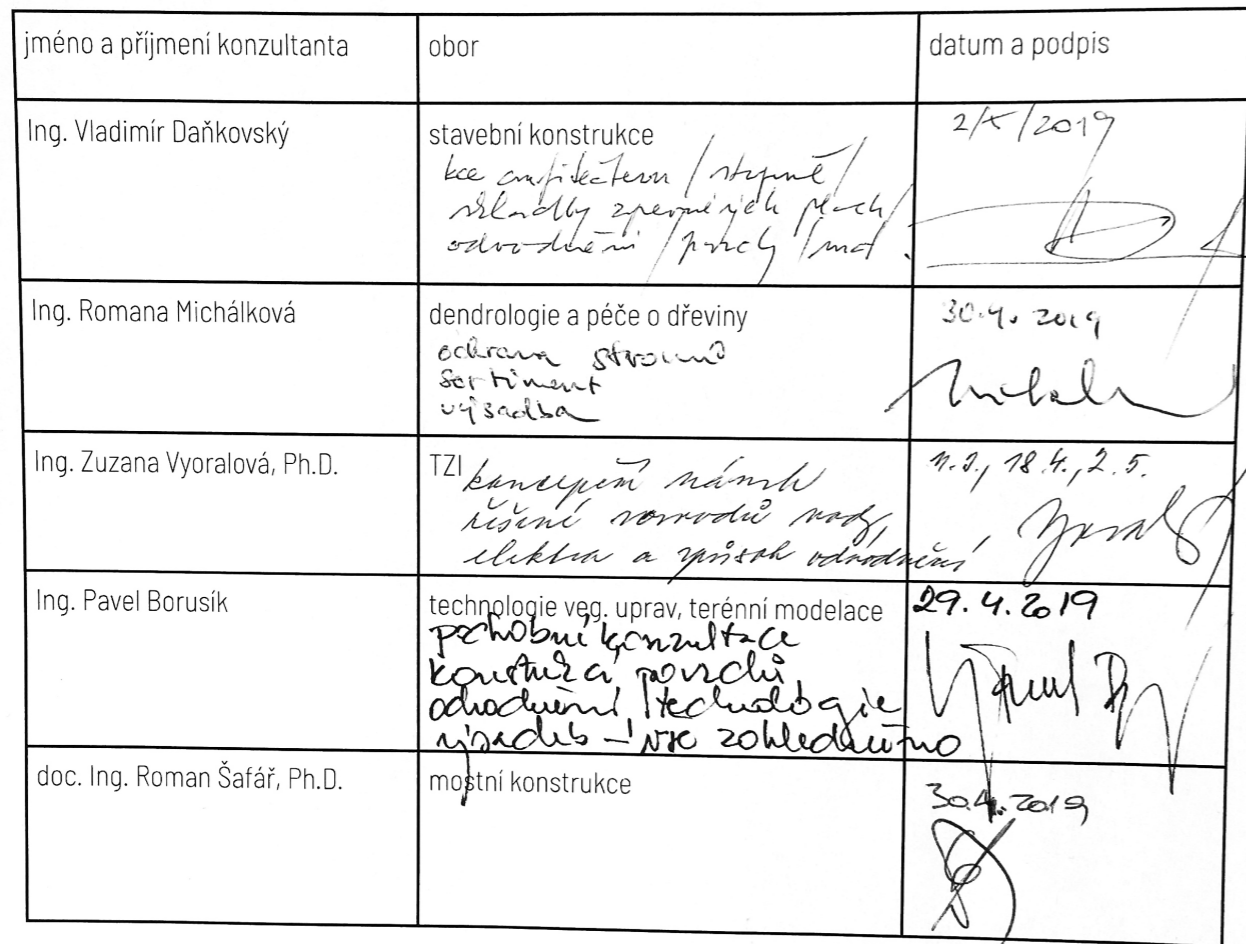 jméno a příjmení konzultanta
obor
datum a podpis
Ing. Vladimír Daňkovský
stavební konstrukce
kce amfiteátru / stupně /
skladby zpevněných ploch /
odvodnění / prvky / mat.
2/X/2019
Ing. Romana Michálková
dendrologie a péče o dřeviny
ochrana stromů
sortiment
výsadba
30.4. 2019
Ing. Zuzana Vyoralová, Ph.D.
TZI
koncepční návrh
řešení rozvodů vody,
elektra a způsob odvodnění
18.4., 2.5.
Ing. Pavel Borusík
technologie veg. uprav, terénní modelace
konzultace
povrchů,
odvodnění, technologie
výsadeb – vše zohledněno
29.4.2019
doc. Ing. Roman Šafář, Ph.D.
mostní konstrukce
30.4.2019